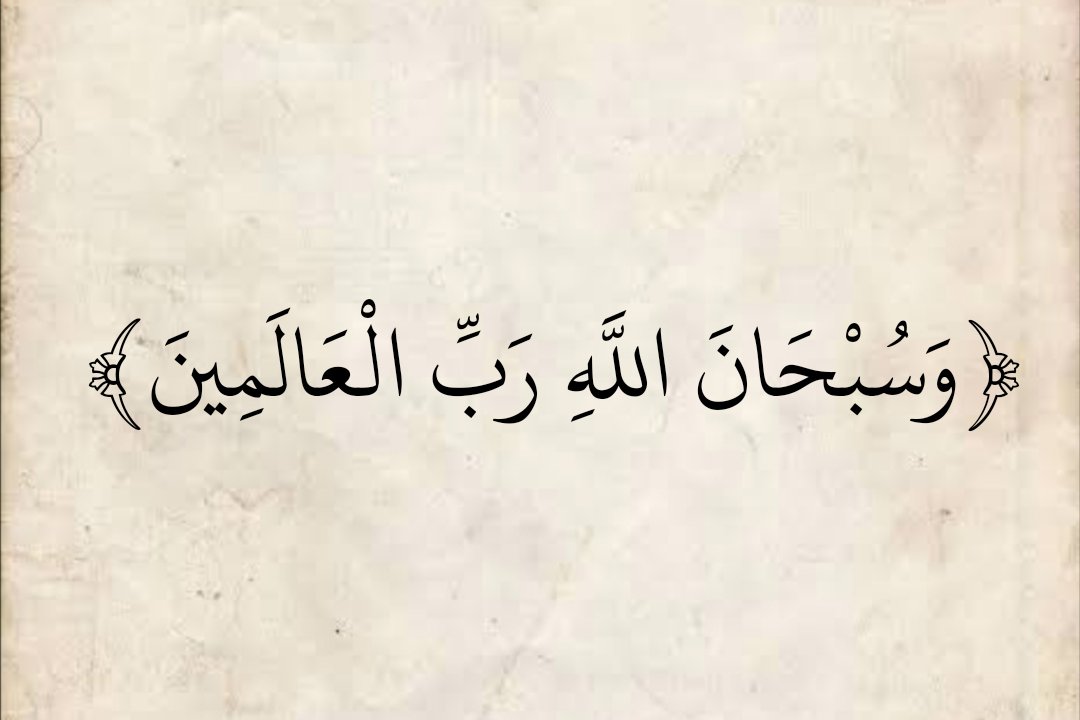 ﴿ وَسُبْحَانَ اللَّهِ رَبِّ الْعَالَمِينَ ﴾